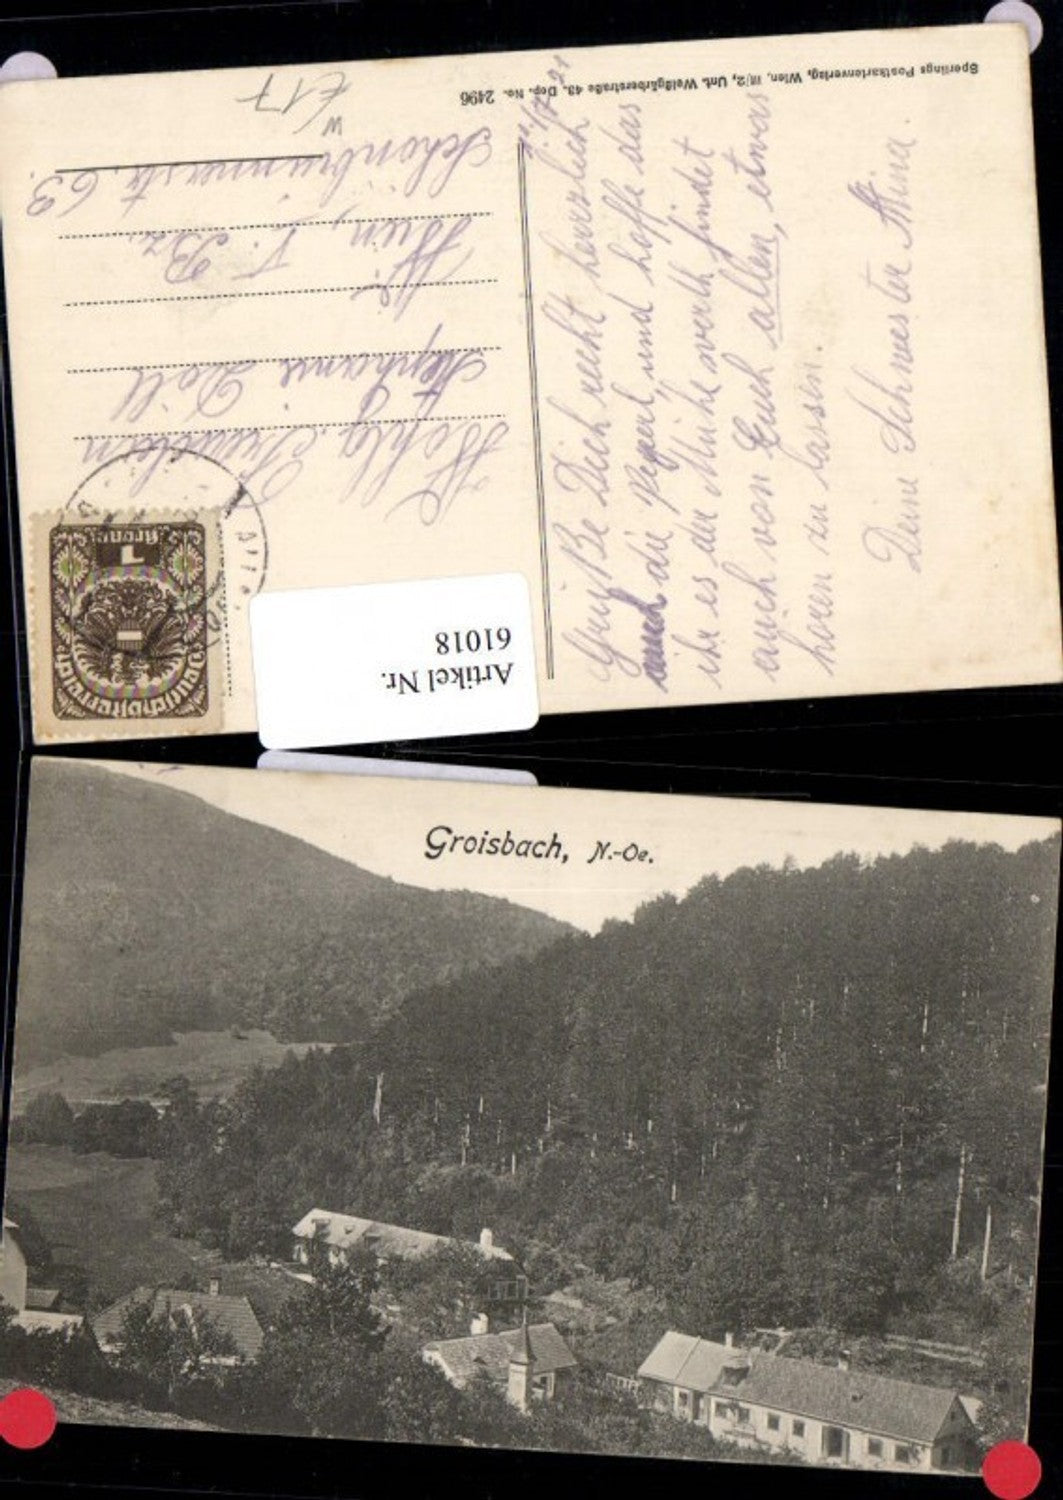 Sperlings Postkartenverlag, Wien, III/2, Unt. Weißgärberstraße 43. Dep. No. 2496
Grüße Dich recht herzlich
auch die Peperl, und hoffe das
ihr es der Mühe werth findet
auch von Euch allen, etwas
hören zu lassen.
Deine Schwester Mina.
Wohlg. Fräulein
Stephanie Doll
Wien,
V. Bz.
Schönbrunnerstr. 63.
W
E17
1
Krone
Deutschösterreich
Artikel Nr.
61018
Groisbach, N.-Oe.